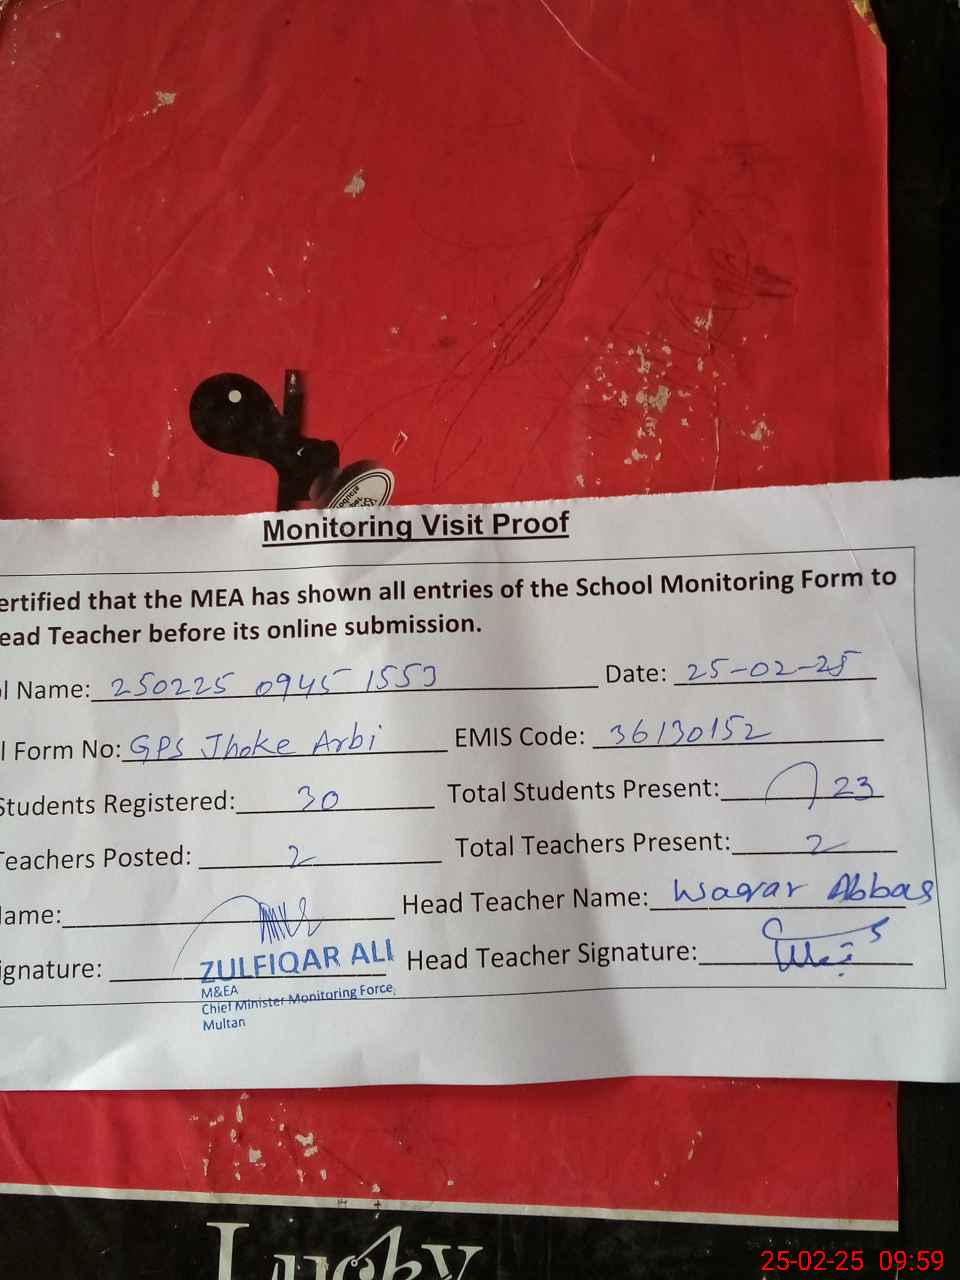 Monitoring Visit Proof
ertified that the MEA has shown all entries of the School Monitoring Form to
ead Teacher before its online submission.
l Name: 250225 0945 1553 Date: 25-02-25
l Form No: GPS Jhoke Arbi EMIS Code: 36130152
Students Registered: 30 Total Students Present: 23
Teachers Posted: 2 Total Teachers Present: 2
lame: Head Teacher Name: Waqar Abbas
ignature: Head Teacher Signature:
ZULFIQAR ALI
M&EA
Chief Minister Monitoring Force,
Multan
Lucky
25-02-25 09:59